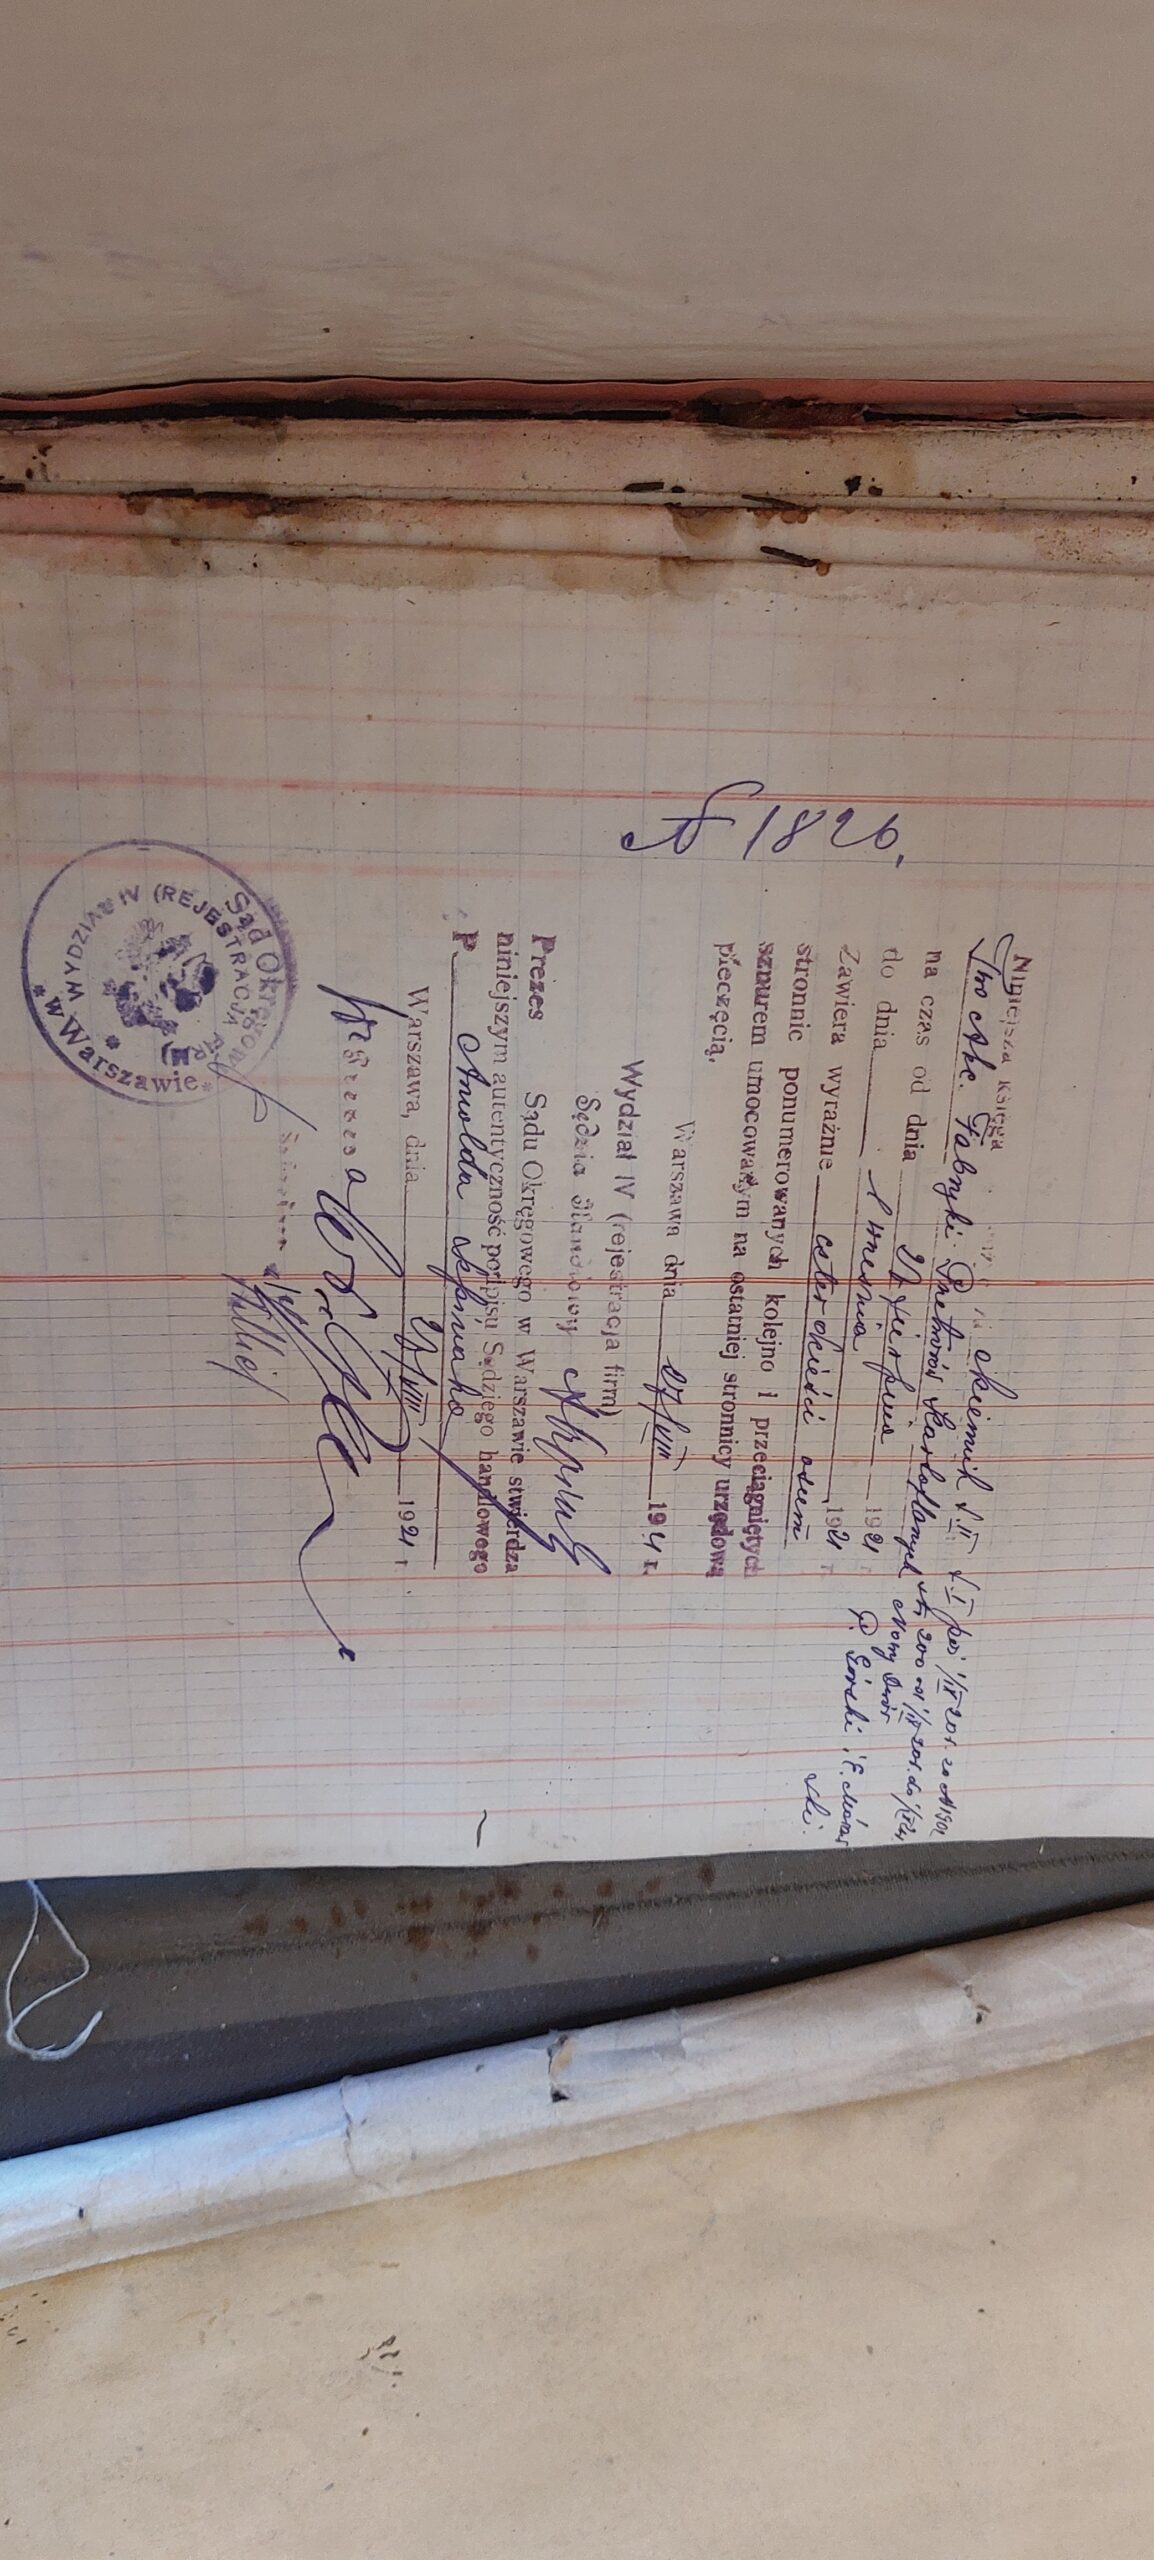 № 1826.
Niniejsza Księga
Two Akc. Fabryki Przetworów Kartoflanych
200 od 1/IX 20r. do
Nowy Dwór
P. Górski i E.
ski.
na czas od dnia 27 sierpnia 1921
do dnia 1 września 1921 r
Zawiera wyraźnie czterdzieści osiem
stronnic ponumerowanych kolejno i przeciągniętych
sznurem umocowanym na ostatniej stronnicy urzędową
pieczęcią.
Warszawa dnia 27/VIII 1921 r.
Wydział IV (rejestracja firm)
Sędzia Handlowy
Prezes Sądu Okręgowego w Warszawie stwierdza
niniejszym autentyczność podpisu Sędziego handlowego
P. Arnolda
Warszawa, dnia 27/VIII 1921 r.
Prezesa
Sekretarz
Sąd Okręgowy
w Warszawie
WYDZIAŁ IV (REJESTRACJA FIRM)